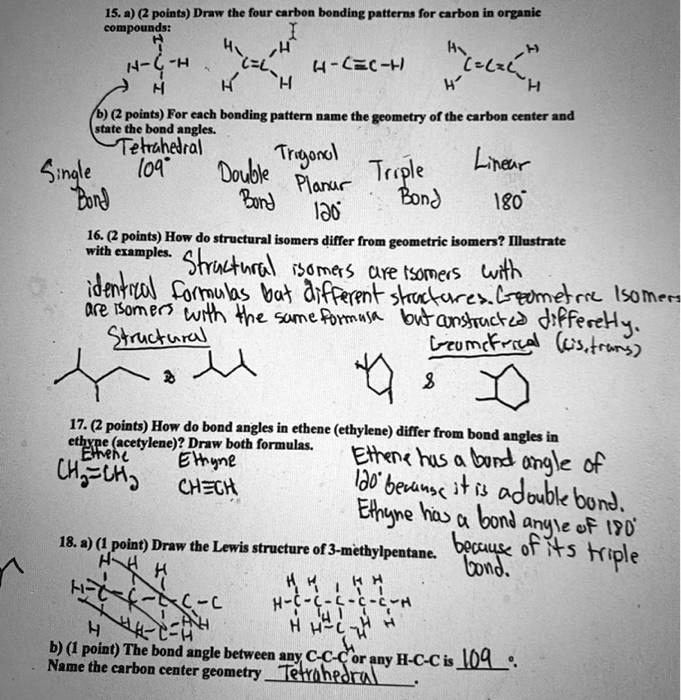 15. a) (2 points) Draw the four carbon bonding patterns for carbon in organic
compounds:
H H H H H
H-C-H C=C H-C≡C-H C=C=C
H H H H H
b) (2 points) For each bonding pattern name the geometry of the carbon center and
state the bond angles.
Tetrahedral Trigonol Linear
Single 109° Double Planar Triple 180°
Bond Bond 120° Bond
16. (2 points) How do structural isomers differ from geometric isomers? Illustrate
with examples. Structural isomers are isomers with
identical formulas but different structures. Geometric Isomers
are isomers with the same formula but constructed differetly.
Structural Geometrical (cis, trans)
& &
17. (2 points) How do bond angles in ethene (ethylene) differ from bond angles in
ethyne (acetylene)? Draw both formulas.
Ethene Ethyne Ethene has a bond angle of
CH₂=CH₂ CH≡CH 120° because it is a double bond.
Ethyne has a bond angle of 180°
because of its triple
bond.
18. a) (1 point) Draw the Lewis structure of 3-methylpentane.
H H H H H H
H-C-C-C-C-C H-C-C-C-C-C-H
H H-C-H H H H-C-H H
b) (1 point) The bond angle between any C-C-C or any H-C-C is 109°.
Name the carbon center geometry Tetrahedral.